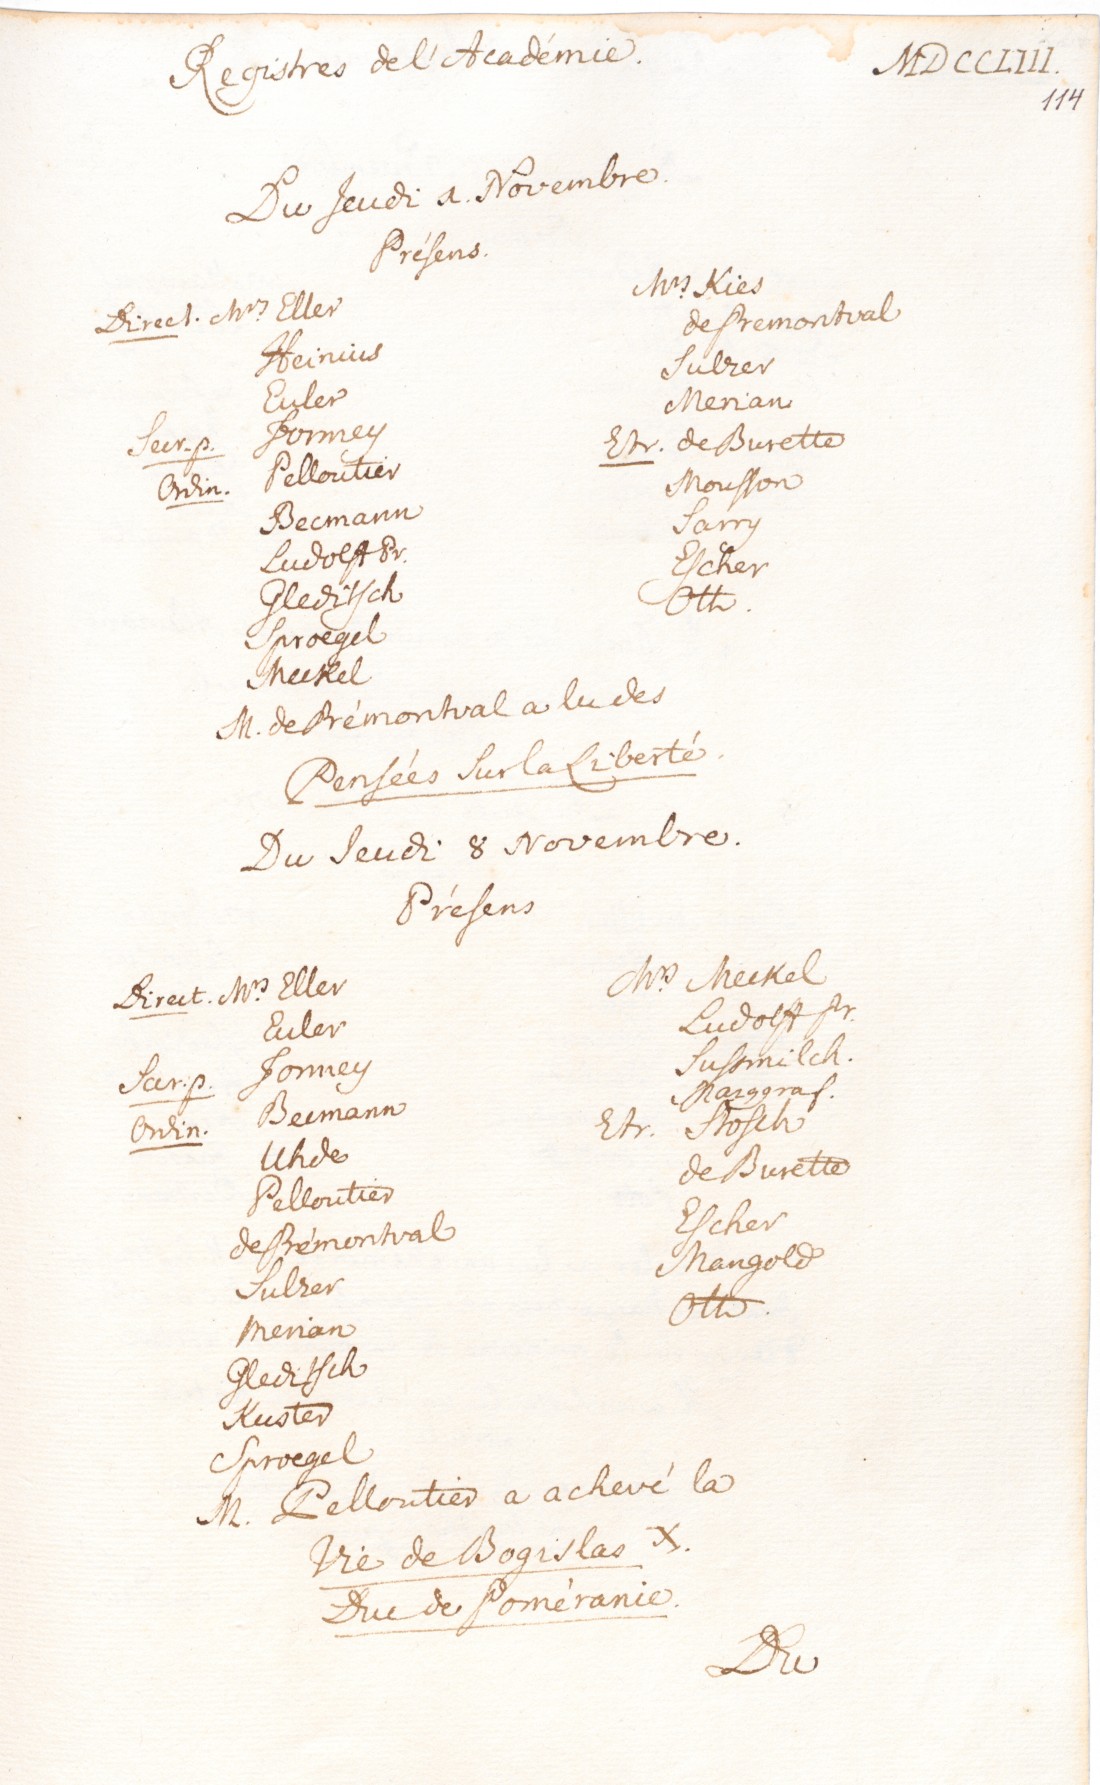 Registres de l'Académie.
MDCCLIII.
114
Du Jeudi 1. Novembre.
Présens.
Direct. Mrs Eller
Heinius
Euler
Secr. p. Formey
Ordin. Pelloutier
Becmann
Ludolff Pr.
Gleditsch
Sproegel
Meckel
Mrs Kies
de Premontval
Sulzer
Merian
Etr. de Burette
Mousson
Sarry
Escher
Oth.
M. de Prémontval a lu des
Pensées sur la Liberté.
Du Jeudi 8 Novembre.
Présens
Direct. Mrs Eller
Euler
Secr. p. Formey
Ordin. Becmann
Uhde
Pelloutier
de Prémontval
Sulzer
Merian
Gleditsch
Kuster
Sproegel
Mrs Meckel
Ludolff pr.
Susmilch.
Marggraf.
Etr. Stosch
de Burette
Escher
Mangold
Oth.
M. Pelloutier a achevé la
Vie de Bogislas X.
Duc de Poméranie.
Du